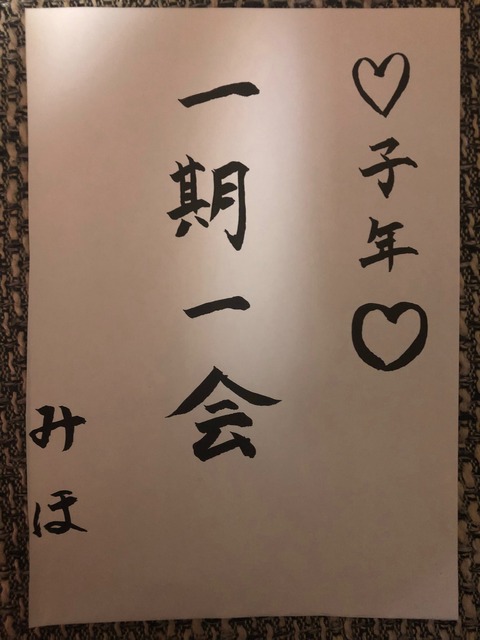 ♡子年♡
一期一会
みほ